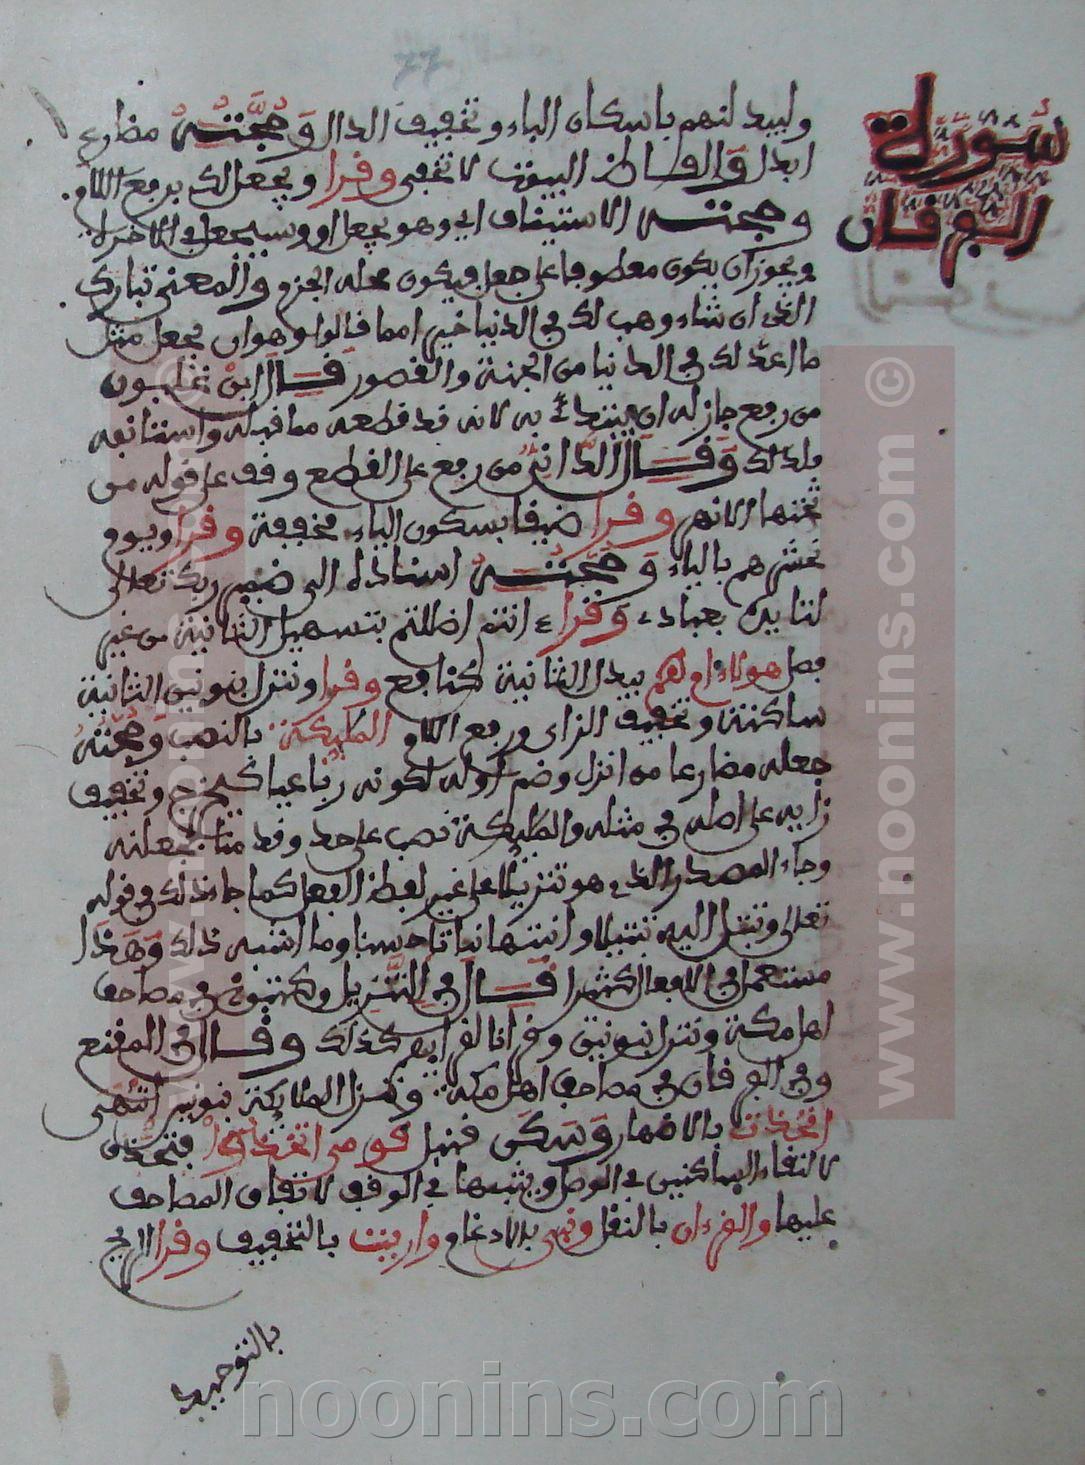 77
سورة
الفرقان
وليبدلنهم باسكان الباء وتخفيف الدال وحجته مضارع
ابدل والفاظ البيوت لا تخفى وقرا ويجعل لك برفع اللام
وحجته الاستيناف اي وهو يجعل او وسيجعل في الاخرة
ويجوز ان يكون معطوفا على جعل فيكون محله الجزم والمعنى تبارك
الذي ان شاء وهب لك في الدنيا خيرا مما قالوا وهو ان يجعل مثل
ما اعد لك في الدنيا من الجنة والقصور قال ابن غلبون
من رفع جاز له ان يبتدئ به لانه قد قطعه مما قبله واستانفه
فلذلك وقال الداني من رفع على القطع وقف على قوله من
تحتها الانهر وقرا ضيقا بسكون الياء مخففة وقرا ويوم
نحشرهم بالياء وحجته اسناده الى ضمير ربك تعالى
لتا بعباد وقرا ءانتم اضللتم بتسهيل الثانية من غير
فصل هولاء ام لهم يبدل الثانية كنافع وقرا وننزل بنونين الثانية
ساكنة وتخفيف الزاي ورفع اللام الملئكة بالنصب وحجته
جعله مضارعا من انزل وضم اوله لكونه رباعيا كيخرج وتخفيف
زايه على اصله في مثله والملئكة نصب على حد وقدمنا فجعلنه
وجاء المصدر الذي هو تنزيلا على غير لفظ الفعل كما جاء ذلك في قوله
تعلى وتبتل اليه تبتيلا وانبتها نباتا حسنا وما اشبه ذلك وهذا
مستعمل في الافعال كثيرا قال في التنزيل وكتبوا في مصاحف
اهل مكة وننزل بنونين وقرانا لقرايهم كذلك وقال في المقنع
وفي الفرقان في مصاحف اهل مكة وننزل الملايكة بنونين انتهى
اتخذت بالاضهار وسكن قنبل قومي اتخذوا فتحذف
لالتقاء الساكنين في الوصل ويثبتها في الوقف لاتفاق المصاحف
عليها والقرءان بالنقل بالادغام واريت بالتخفيف وقرا الريح
بالتوحيد
www.noonins.com ©
www.noonins.com ©
noonins.com